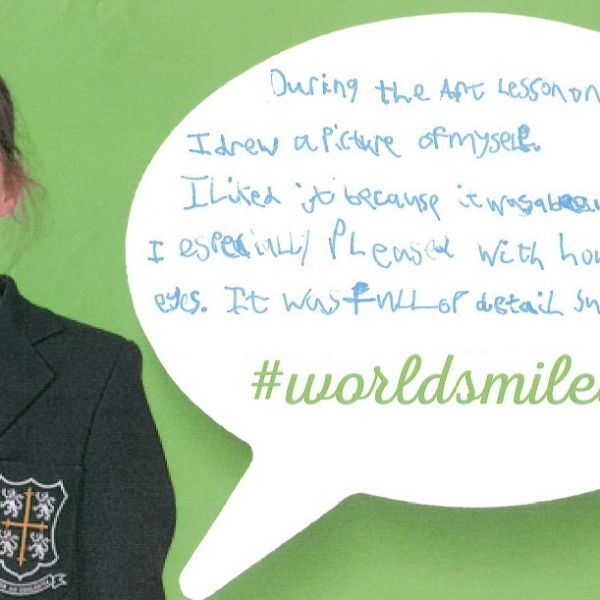 During the Art Lesson on
I drew a Picture of myself.
I Liked it because it was a
I especially Pleased with how
eyes. It was Full of detail
#worldsmile